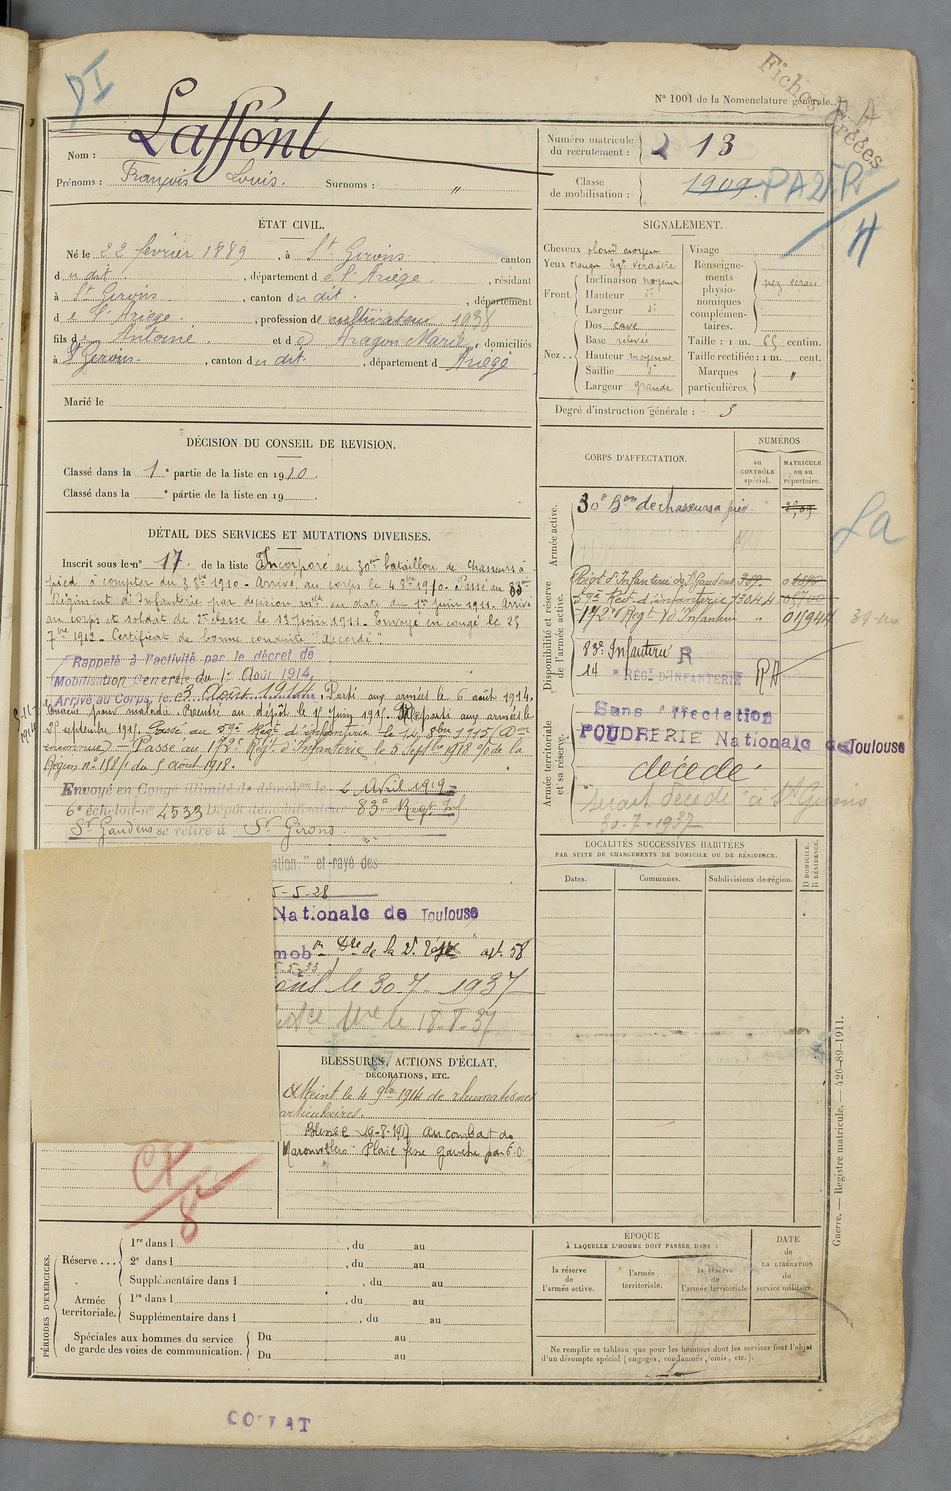 Fiches Créées
N° 1001 de la Nomenclature générale.
Laffont
Nom :
Prénoms : François Louis. Surnoms : "
Numéro matricule du recrutement : 213
Classe de mobilisation : 1909
ÉTAT CIVIL.
Né le 22 février 1889, à St Girons canton
dudit, département de l'Ariège, résidant
à St Girons, canton dudit, département
de l'Ariège, profession de cultivateur 1938
fils d' Antoine et de Aragon Marie, domiciliés
à St Girons, canton dudit, département d Ariège
Marié le
SIGNALEMENT.
Cheveux blond moyen
Yeux
Front.
Inclinaison moyenne
Hauteur
Largeur
Nez...
Dos cave
Base relevée
Hauteur moyenne
Saillie
Largeur grande
Visage
Renseignements physionomiques complémentaires.
Taille : 1 m. 65 centim.
Taille rectifiée : 1 m. cent.
Marques particulières. "
Degré d'instruction générale : 3
DÉCISION DU CONSEIL DE REVISION.
Classé dans la 1e partie de la liste en 1910.
Classé dans la e partie de la liste en 19
DÉTAIL DES SERVICES ET MUTATIONS DIVERSES.
Inscrit sous le n° 17 de la liste Incorporé au 30me bataillon de Chasseurs à
pied à compter du 3 8bre 1910. Arrivé au corps le 4 8bre 1910. Passé au 83me
Régiment d'Infanterie par décision mlle en date du 1er juin 1911. Arrivé
au corps et soldat de 2e classe le 13 juin 1911. Envoyé en congé le 25
7bre 1912. Certificat de bonne conduite "accordé"
Rappelé à l'activité par le décret de
Mobilisation Générale du 1er Août 1914.
Arrivé au Corps, le 3 Août 1914. Parti aux armées le 6 août 1914.
Évacué pour maladie. Rentré au dépôt le 11 juin 1915. Reparti aux armées le
21 septembre 1915. Passé au 59e Régt d'infanterie le 14 8bre 1915
Passé au 172e Régt d'Infanterie le 5 Septbre 1918 de la
Région n° 1581 du 8 août 1918.
Envoyé en Congé illimité de démobilon le 2 Avril 1919
6e échelon n° 4533 Dépôt démobilisateur 83e Régt Inf
St Gaudens se retire à St Girons.
et rayé des
5-5-28
Nationale de Toulouse
de la art. 58
le 30-7-1937
le 18-8-37
BLESSURES, ACTIONS D'ÉCLAT,
DÉCORATIONS, ETC.
Atteint le 4 9bre 1914 de rhumatismes
articulaires.
Blessé 19-8-1917 au combat de
Moronvilliers Plaie fesse gauche par é.o.
CORPS D'AFFECTATION.
NUMÉROS
au CONTRÔLE spécial.
MATRICULE ou au répertoire.
Armée active.
30e Bon de chasseurs à pied
Disponibilité et réserve de l'armée active.
Régt d'Infanterie de St Gaudens
59e Régt d'infanterie
172e Régt d'Infanterie " 01944
83e Infanterie R
14 RÉGt D'INFANTERIE RA
Armée territoriale et sa réserve.
Sans affectation
POUDRERIE Nationale de Toulouse
décédé
serait décédé à St Girons
30-7-1937
LOCALITÉS SUCCESSIVES HABITÉES
PAR SUITE DE CHANGEMENTS DE DOMICILE OU DE RÉSIDENCE.
Dates.
Communes.
Subdivisions de région.
D DOMICILE.
R RÉSIDENCE.
PÉRIODES D'EXERCICES.
Réserve...
1re dans l , du au
2e dans l , du au
Supplémentaire dans l , du au
Armée territoriale.
1re dans l , du au
Supplémentaire dans l , du au
Spéciales aux hommes du service de garde des voies de communication.
Du au
Du au
ÉPOQUE
À LAQUELLE L'HOMME DOIT PASSER DANS :
la réserve de l'armée active.
l'armée territoriale.
la réserve de l'armée territoriale
DATE de LA LIBÉRATION du service militaire.
Ne remplir ce tableau que pour les hommes dont les services font l'objet
d'un décompte spécial (engagés, condamnés, omis, etc.).
Guerre. — Registre matricule. — 426-89-1911.